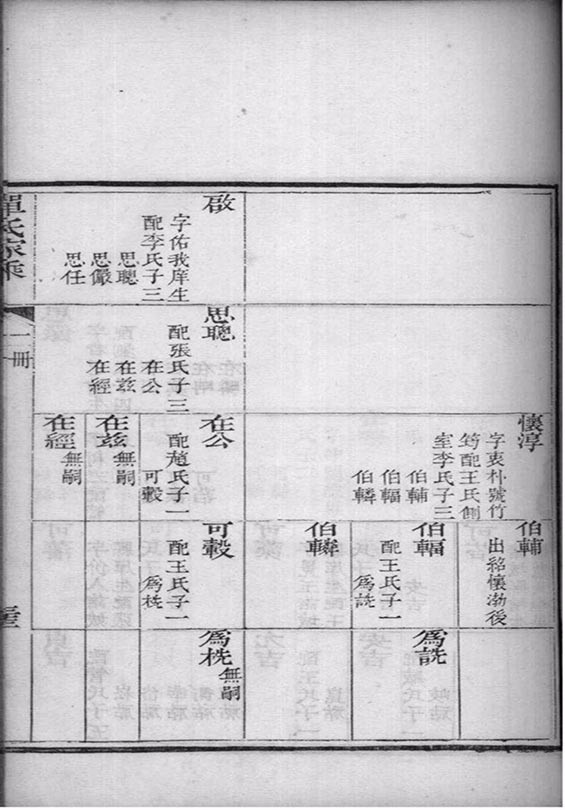 懷淳
字衷朴號竹
筠配王氏側
室李氏子三
伯輔
伯輻
伯轔
伯輔
出紹懷渤後
伯輻
配王氏子一
為詵
伯轔
為詵
啟
字佑我庠生
配李氏子三
思聰
思儼
思任
思聰
配張氏子三
在公
在茲
在經
在公
配趙氏子一
可轂
在茲
無嗣
在經
無嗣
可轂
配王氏子一
為桄
為桄
無嗣
單氏家乘
一冊